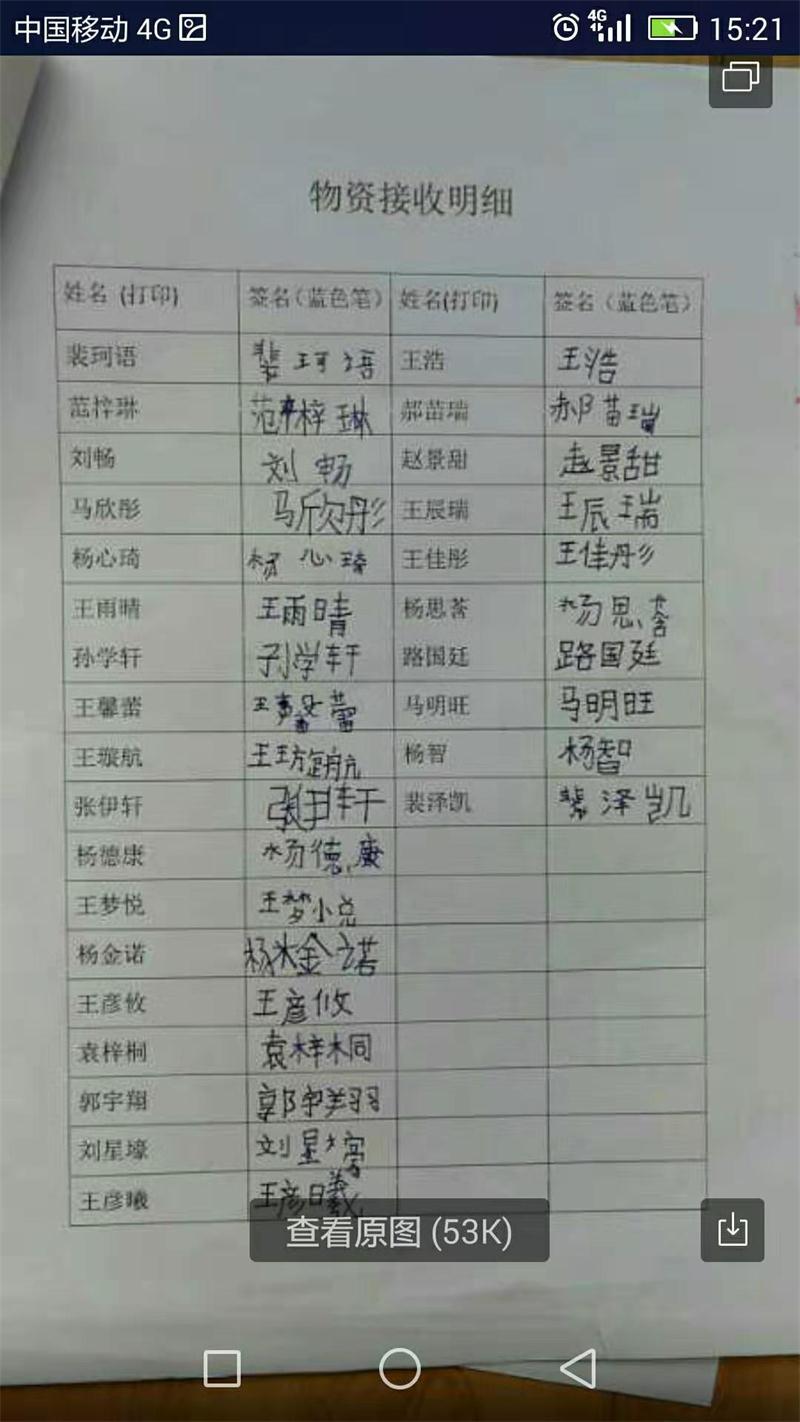 中国移动 4G 4G 15:21
物资接收明细
姓名 (打印) 签名（蓝色笔） 姓名(打印) 签名（蓝色笔）
裴珂语 裴珂语 王浩 王浩
范梓琳 范梓琳 郝苗瑞 郝苗瑞
刘畅 刘畅 赵景甜 赵景甜
马欣彤 马欣彤 王辰瑞 王辰瑞
杨心琦 杨心琦 王佳彤 王佳彤
王雨晴 王雨晴 杨思荟 杨思荟
孙学轩 孙学轩 路国廷 路国廷
王馨蕾 王馨蕾 马明旺 马明旺
王璇航 王璇航 杨智 杨智
张伊轩 张伊轩 裴泽凯 裴泽凯
杨德康 杨德康
王梦悦 王梦悦
杨金诺 杨金诺
王彦攸 王彦攸
袁梓桐 袁梓桐
郭宇翔 郭宇翔
刘星壕 刘星壕
王彦曦 王彦曦
查看原图 (53K)